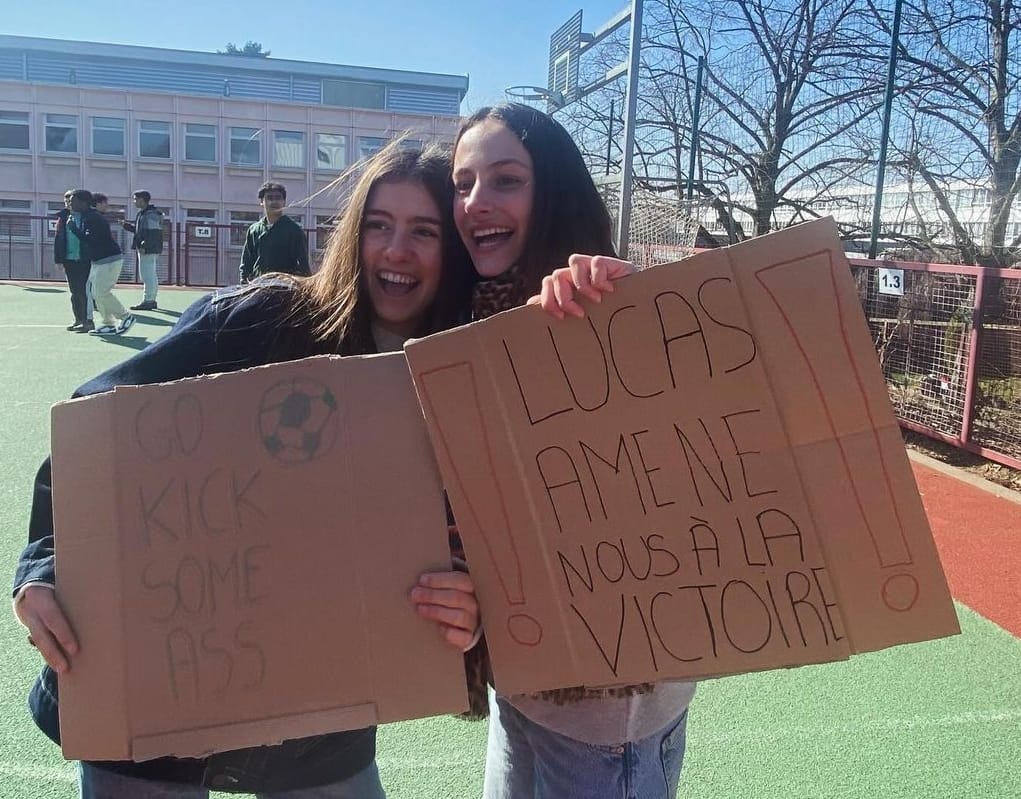 GO
KICK
SOME
ASS
LUCAS
AMENE
NOUS À LA
VICTOIRE
1.3
T.8